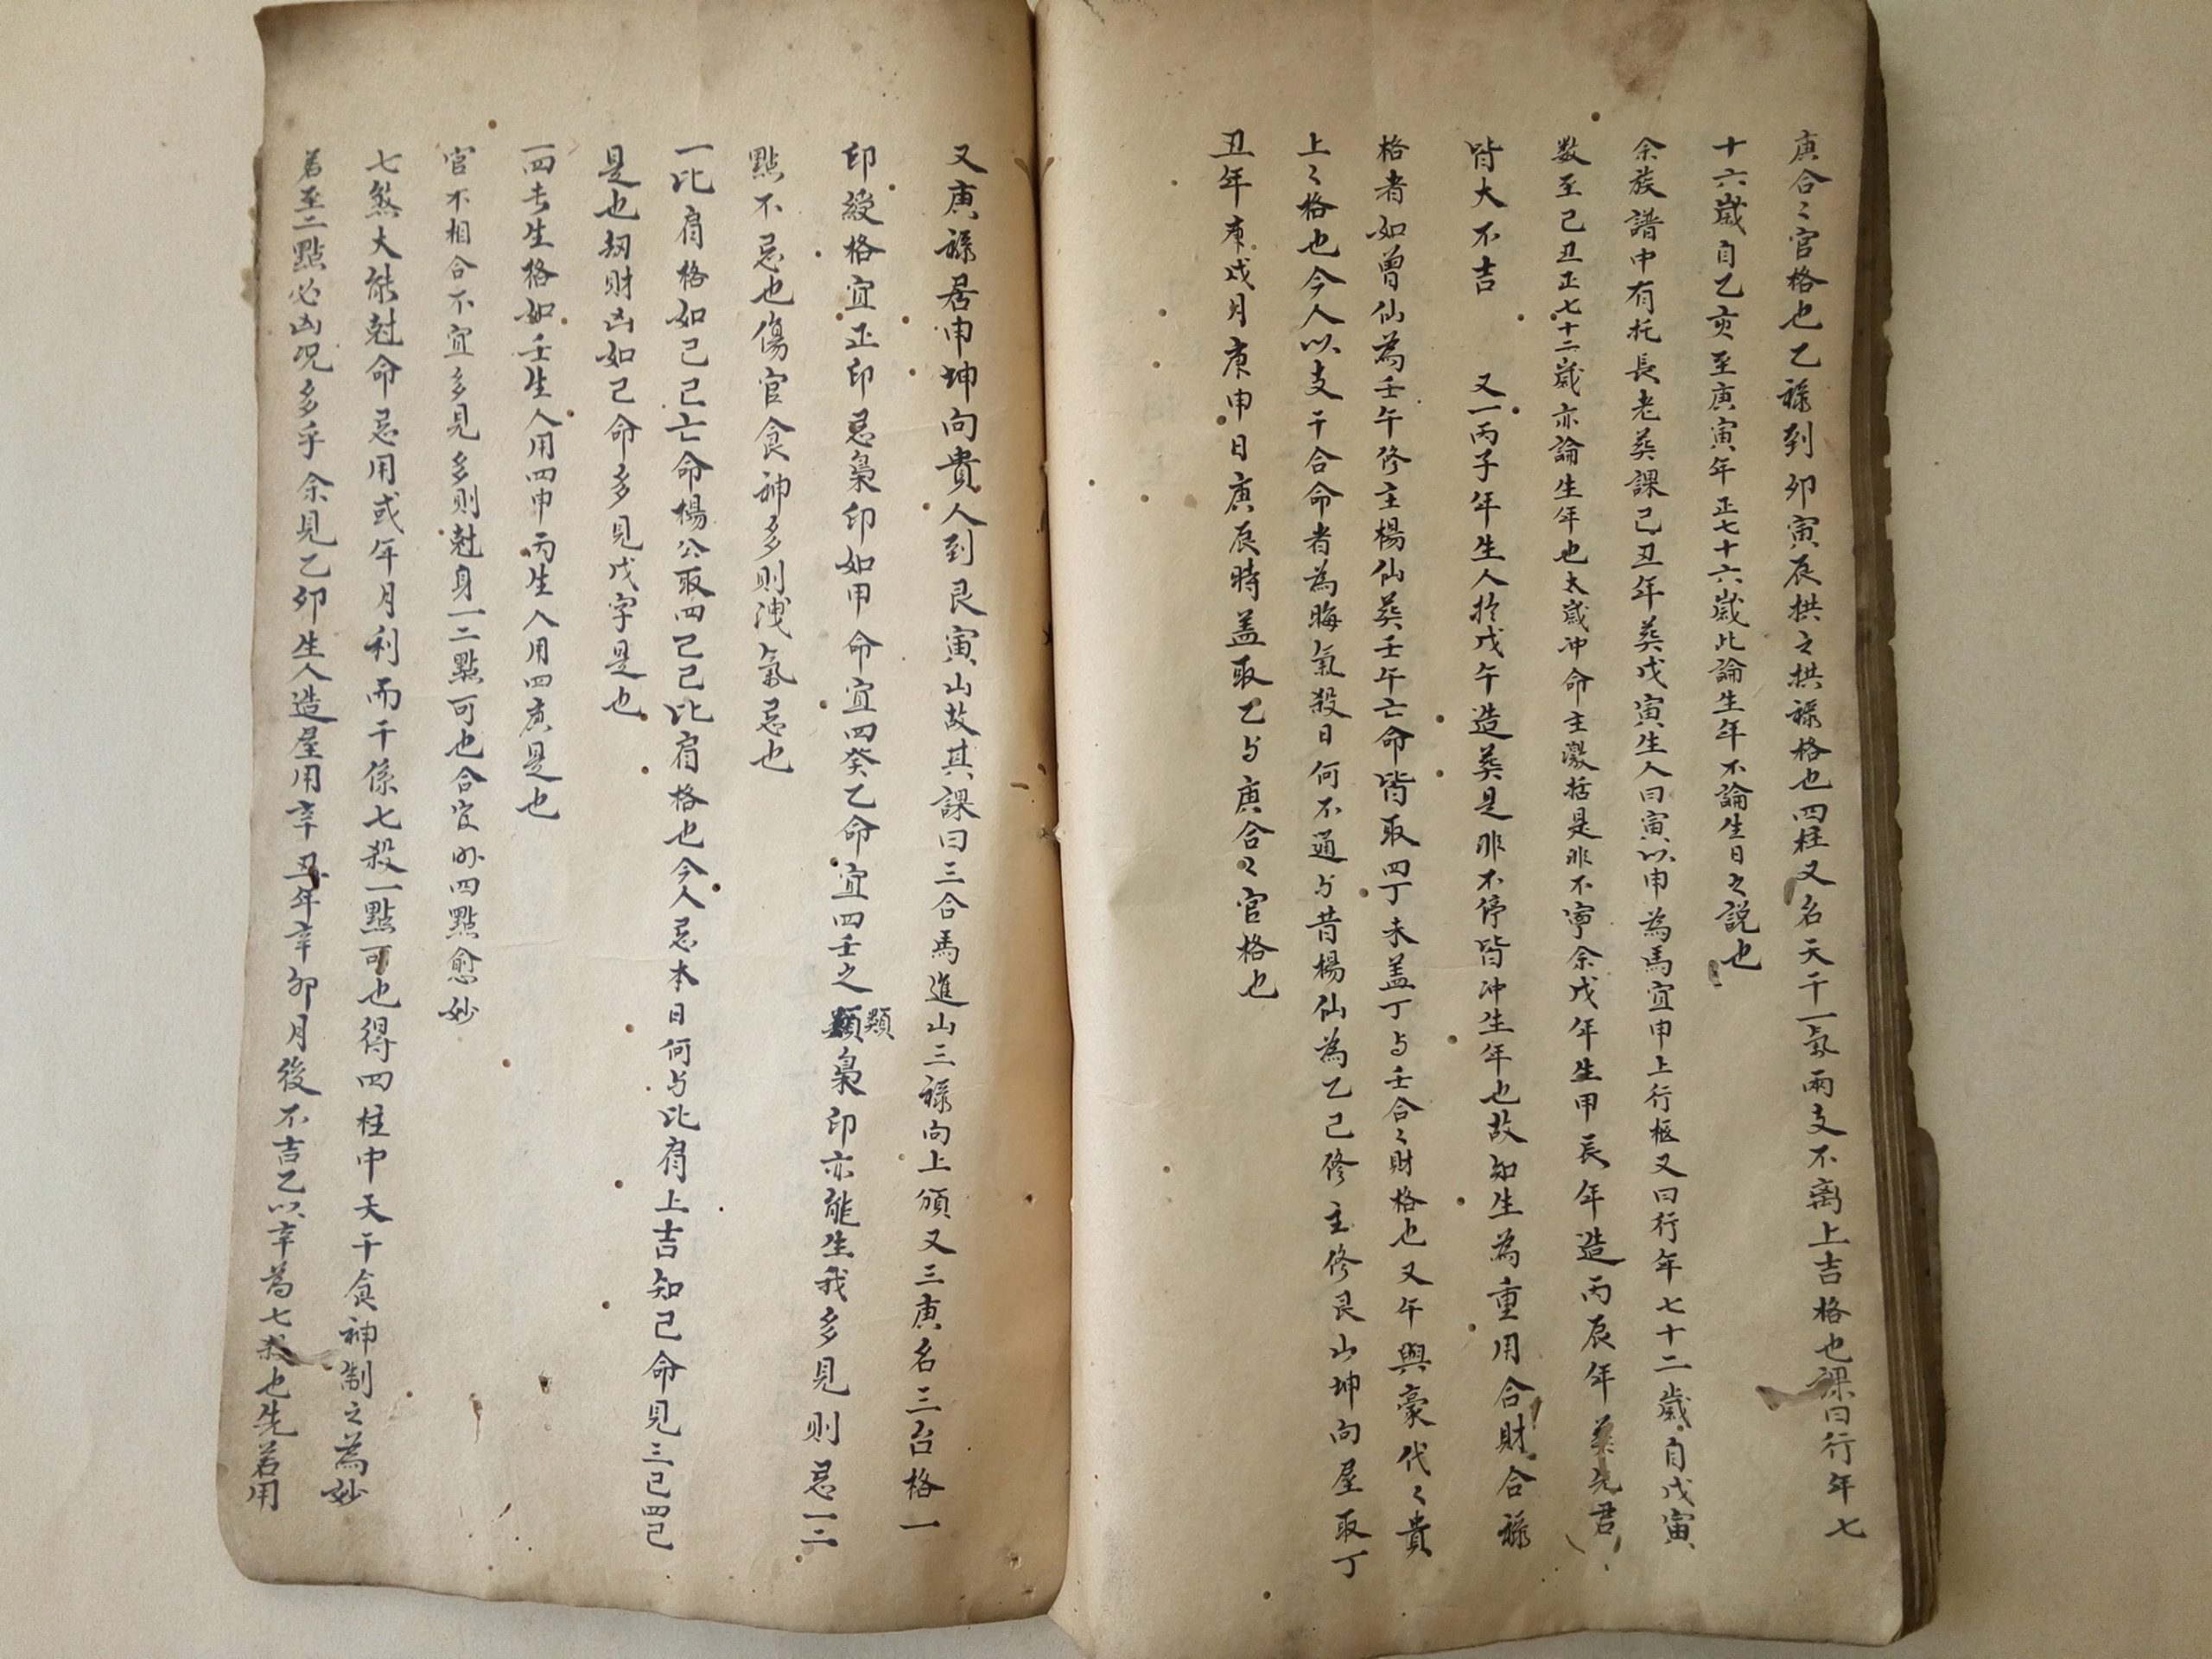 庚合〻官格也乙祿到卯寅辰拱之拱祿格也四柱又名天干一氣兩支不离上吉格也課曰行年七
十六歲自乙亥至庚寅年正七十六歲此論生年不論生日之説也
余族譜中有托長老葵課己丑年葵戊寅生人曰寅以申為馬宜申上行柩又曰行年七十二歲自戊寅
数至己丑正七十二歲亦論生年也太歲冲命主激括是非不寧余戊年生甲辰年造丙辰年葵先君
皆大不吉　又一丙子年生人扵戊午造葵是非不停皆冲生年也故知生為重用合財合祿
格者如曾仙為壬午修主楊仙葵壬午亡命皆取四丁未盖丁与壬合〻財格也又午與豪代〻貴
上〻格也今人以支干合命者為晦氣殺日何不通与昔楊仙為乙己修主修艮山坤向屋取丁
丑年庚戌月庚申日庚辰時盖取乙与庚合〻官格也
又庚祿居申坤向貴人到艮寅山故其課曰三合馬進山三祿向上頒又三庚名三台格一
印綬格宜正印忌梟印如甲命宜四癸乙命宜四壬之類類梟印亦能生我多見則忌一二
點不忌也傷官食神多則洩氣忌也
一比肩格如己己亡命楊公取四己己比肩格也今人忌本日何与比肩上吉知己命見三己四己
是也刼財凶如己命多見戊字是也
一四去生格如壬生人用四申丙生人用四庚是也
官不相合不宜多見多则尅身一二點可也合官外四點愈妙
七煞大能尅命忌用或年月利而干係七殺一點可也得四柱中天干食神制之為妙
若至二點必凶况多乎余見乙卯生人造屋用辛丑年辛卯月後不吉乙以辛為七殺也先若用